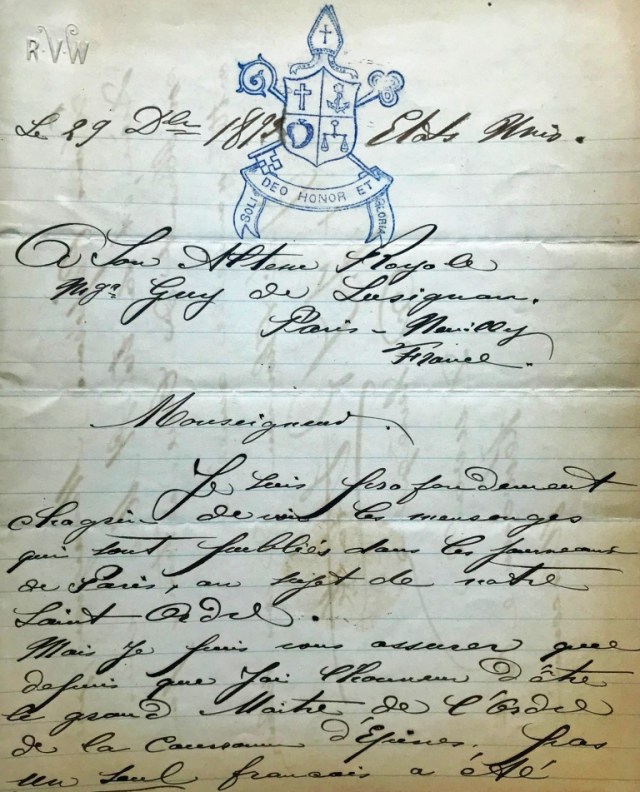 RVW
Le 29 Dbre 189 Etats Unis.
SOLI DEO HONOR ET GLORIA
A Son Altesse Royale
Mgr Guy de Lusignan.
Paris - Neuilly
France.
Monseigneur.
Je suis profondement
chagrin de voir les mensonges
qui sont publiés dans les journaux
de Paris, au sujet de notre
Saint Ordre.
Mais je puis vous assurer que
depuis que j'ai l'honneur d'être
le grand Maitre de l'Ordre
de la Couronne d'Epines, pas
un seul français a été